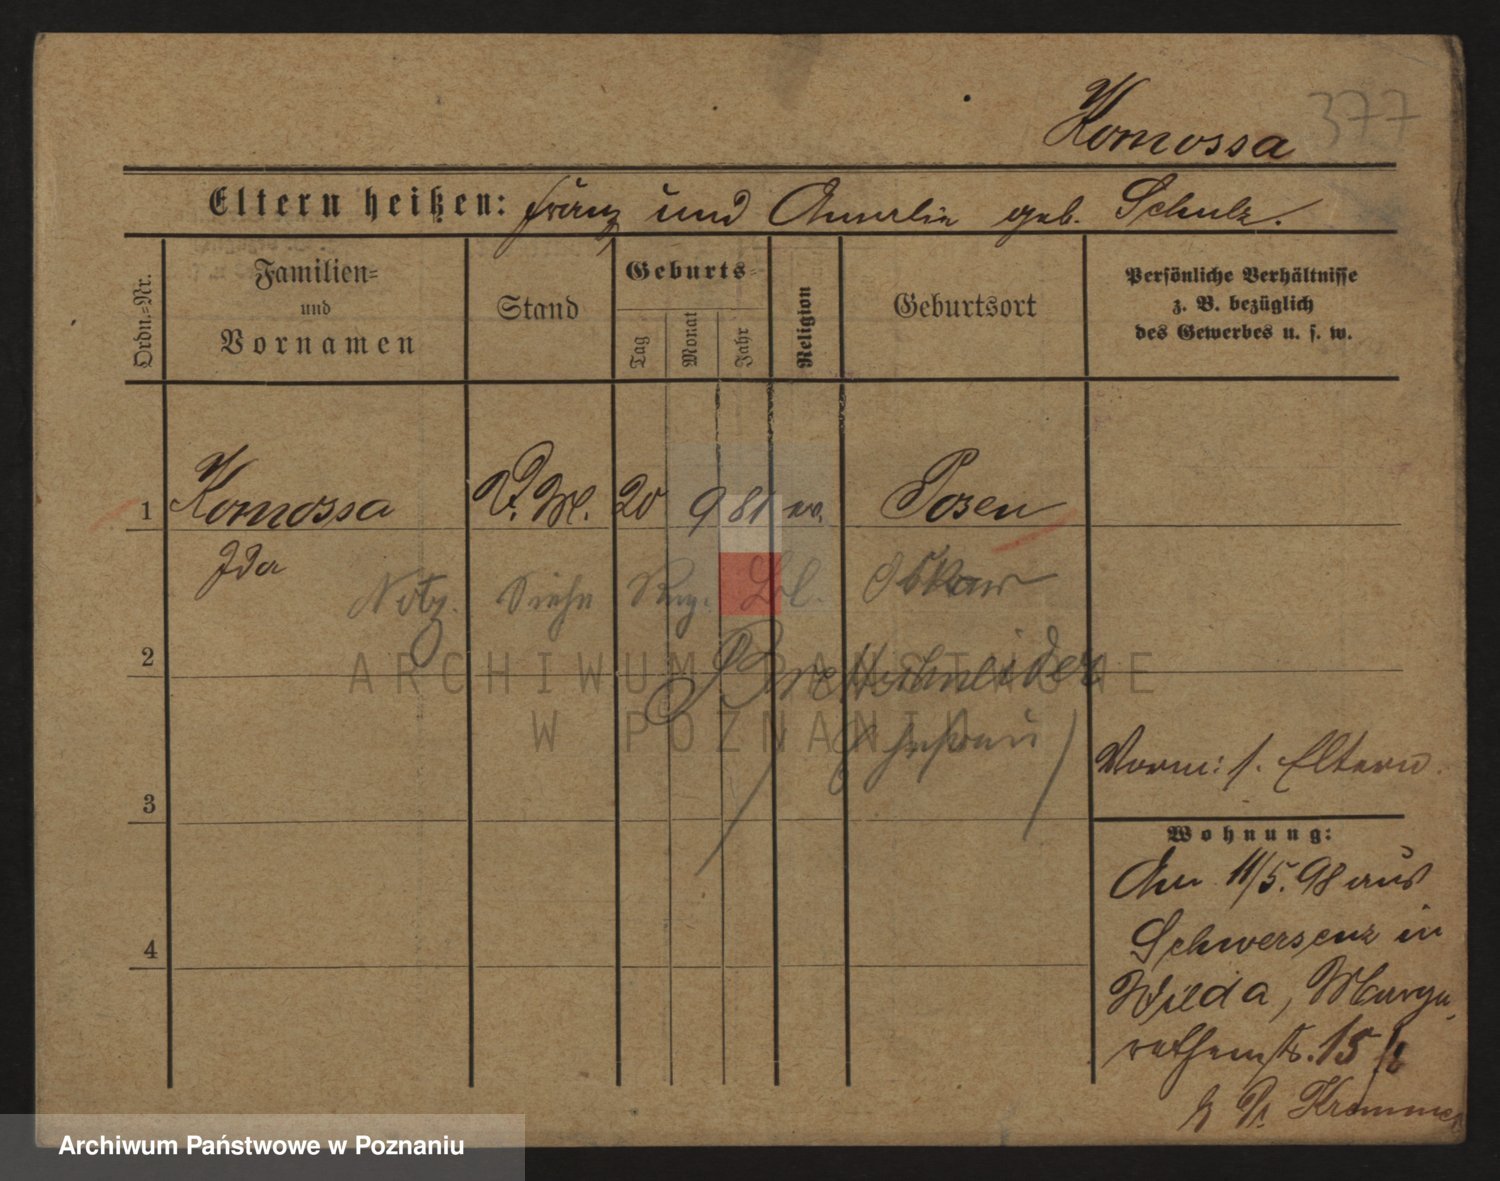 377
Komossa
Eltern heißen: Franz und Amalie geb. Schulz.
Ordn.-Nr.
Familien-
und
Vornamen
Stand
Geburts-
Tag
Monat
Jahr
Religion
Geburtsort
Persönliche Verhältnisse
z. B. bezüglich
des Gewerbes u. s. w.
1 Komossa 20 9 81 ev. Posen
Ida
Notz. Siehe Oskar
2 Brettschneider
ARCHIWUM PAŃSTWOWE
W POZNANIU
(Ehefrau)
Vorm: s. Eltern.
3
Wohnung:
Am 11/5. 98 aus
4 Schwersenz in
Wilda, Marga-
rethenstr. 15
Krommer
Archiwum Państwowe w Poznaniu